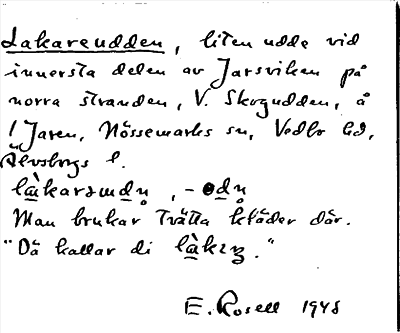 Lakareudden, liten udde vid
innersta delen av Jarsviken på
norra stranden, V. Skogudden, å
l Jaren, Nössemarks sn, Vedbo hd,
Älvsborgs l.
Man brukar tvätta kläder där.
"Då kallar di
E. Rosell 1948